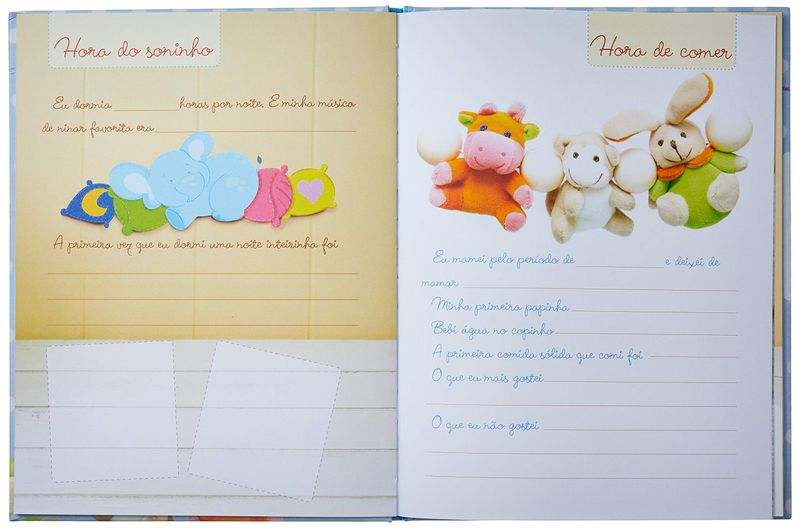 Hora do soninho
Eu dormia __________ horas por noite. E minha música
de ninar favorita era ____________________
A primeira vez que eu dormi uma noite inteirinha foi
Hora de comer
Eu mamei pelo período de ____________ e deixei de
mamar ____________________
Minha primeira papinha ____________________
Bebi água no copinho ____________________
A primeira comida sólida que comi foi __________
O que eu mais gostei ____________________
O que eu não gostei ____________________